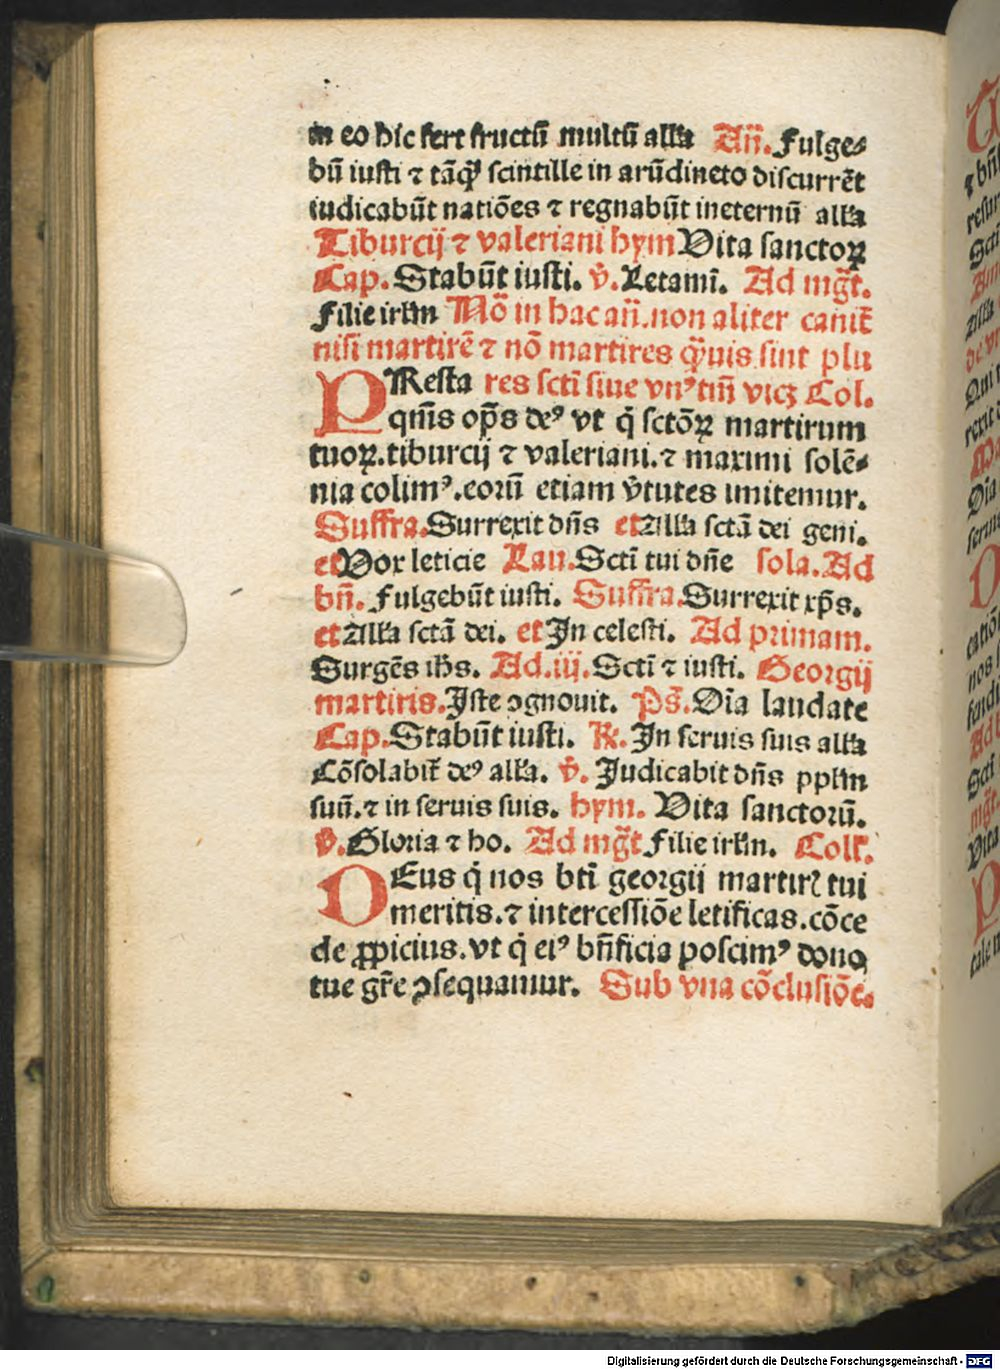 in eo hic fert fructū multū alla Añ. Fulge⸗
bū iusti ⁊ tāq̄ʒ scintille in arūdineto discurrēt
iudicabūt natiōes ⁊ regnabūt ineternū alla
Tiburcij ⁊ valeriani hym Vita sanctoꝝ
Cap. Stabūt iusti. v̄. Letami. Ad mg̃t.
Filie irlm Nō in hac añ. non aliter canit̄
nisi martirē ⁊ nō martires q̄uis sint plu
PResta res sctī siue vnꝰ tm̄ vicʒ Col.
qm̄s op̄s deꝰ vt q̇ sctōꝝ martirum
tuoꝝ. tiburcij ⁊ valeriani. ⁊ maximi solē⸗
nia colimꝰ. eorū etiam v̄tutes imitemur.
Suffra. Surrexit dn̄s et Alla sctā dei geni.
et Vox leticie Lau. Sctī tui dn̄e sola. Ad
bn̄. Fulgebūt iusti. Suffra. Surrexit xp̄s.
et Alla sctā dei. et In celesti. Ad primam.
Surgēs ihs. Ad. iij. Sctī ⁊ iusti. Georgij
martiris. Iste ꝯgnouit. Ps̄. Dīa laudate
Cap. Stabūt iusti. R̄. In seruis suis alla
Cōsolabit̄ deꝰ alla. v̄. Judicabit dn̄s pplm
suū. ⁊ in seruis suis. hym. Vita sanctorū.
v̄. Gloria ⁊ ho. Ad mg̃t Filie irlm. Coll.
DEus q̇ nos btī georgij martirꝭ tui
meritis. ⁊ intercessiōe letificas. cōce
de ꝓpicius. vt q̇ eiꝰ bn̄ficia poscimꝰ dono
tue gr̄e ꝯsequamur. Sub vna cōclusiōe.
Digitalisierung gefördert durch die Deutsche Forschungsgemeinschaft - DFG